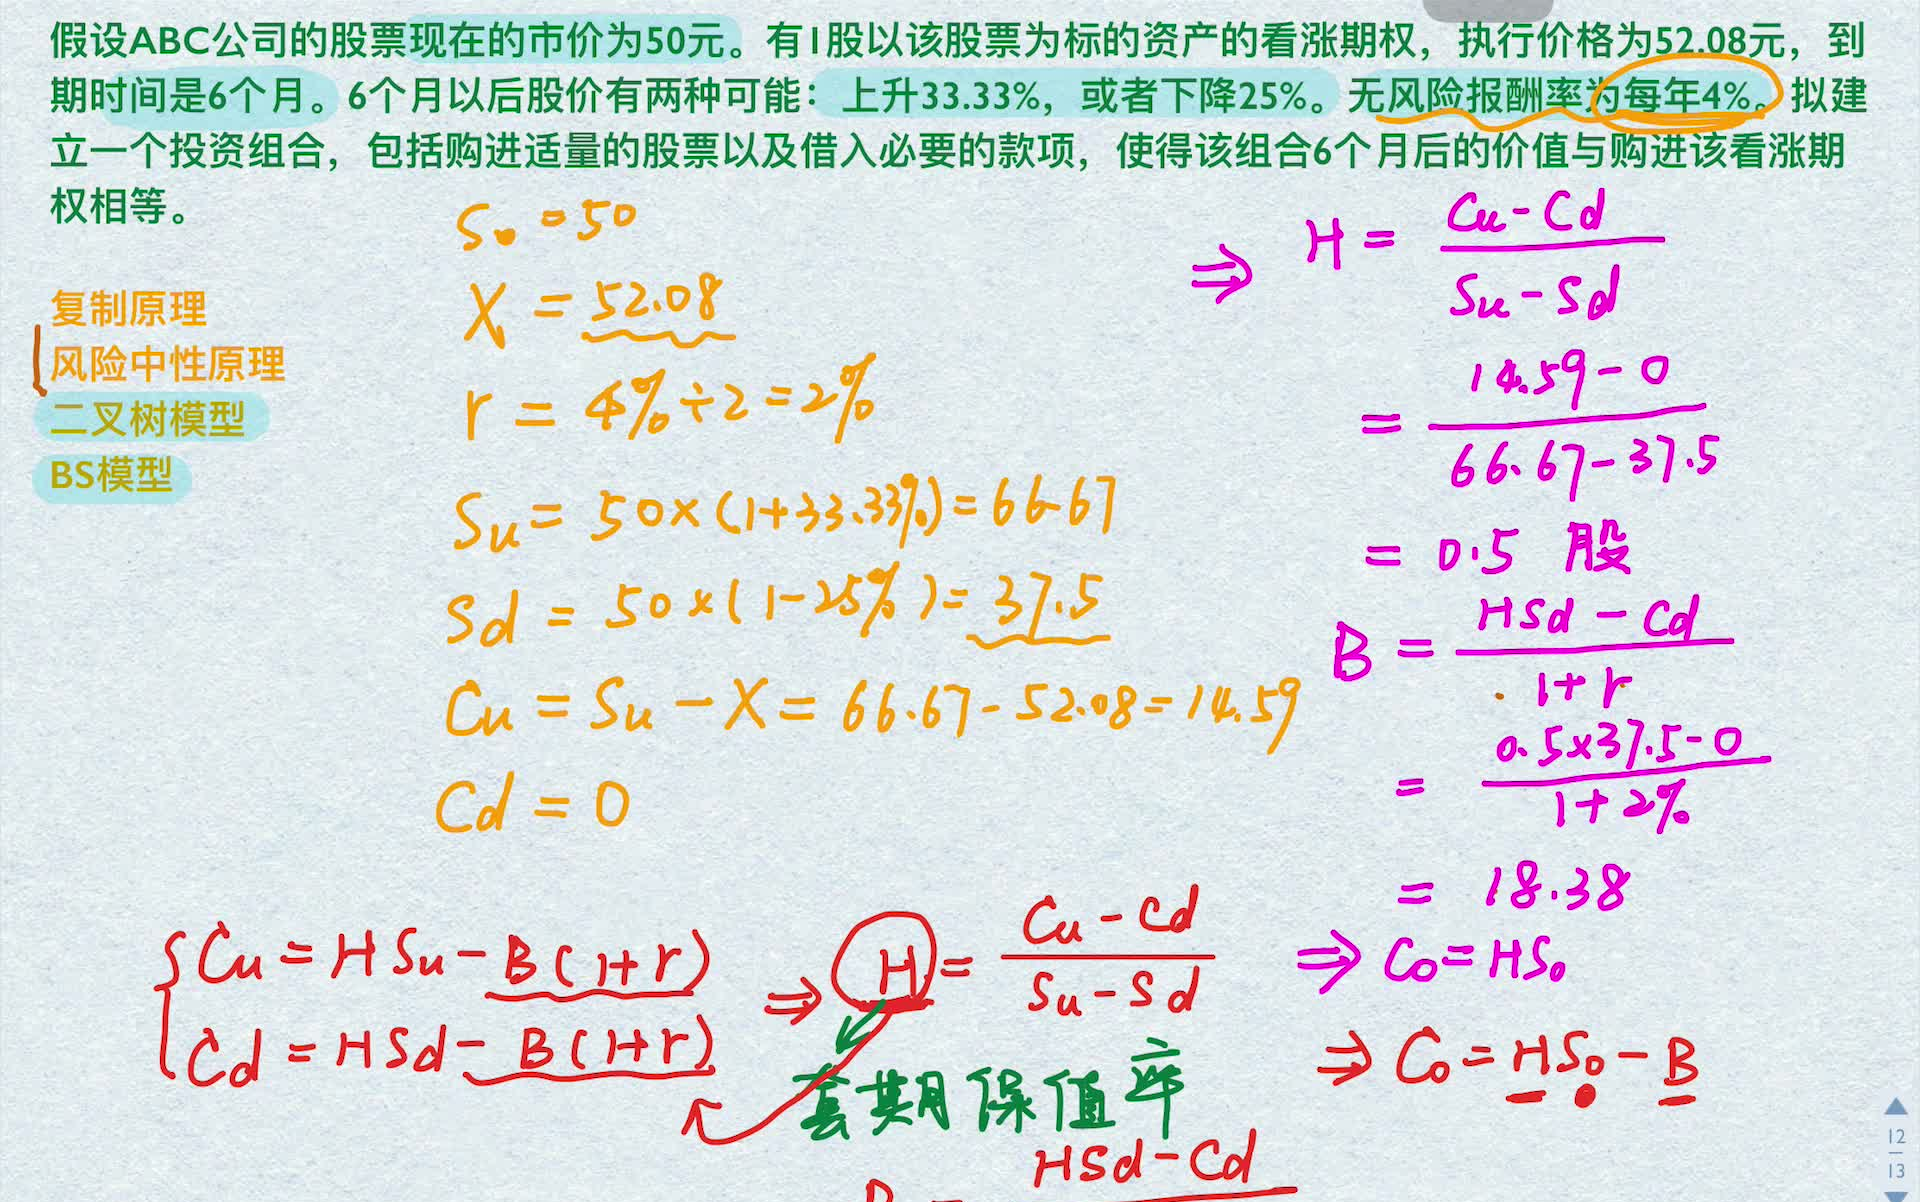 假设ABC公司的股票现在的市价为50元。有1股以该股票为标的资产的看涨期权，执行价格为52.08元，到
期时间是6个月。6个月以后股价有两种可能：上升33.33%，或者下降25%。无风险报酬率为每年4%。拟建
立一个投资组合，包括购进适量的股票以及借入必要的款项，使得该组合6个月后的价值与购进该看涨期
权相等。
复制原理
风险中性原理
二叉树模型
BS模型
S₀ = 50
X = 52.08
r = 4% ÷ 2 = 2%
Su = 50 × (1+33.33%) = 66.67
Sd = 50 × (1-25%) = 37.5
Cu = Su - X = 66.67 - 52.08 = 14.59
Cd = 0
⇒ H = (Cu - Cd) / (Su - Sd)
= (14.59 - 0) / (66.67 - 37.5)
= 0.5 股
B = (HSd - Cd) / (1+r)
= (0.5×37.5-0) / (1+2%)
= 18.38
⇒ C₀ = HS₀
⇒ C₀ = HS₀ - B
{ Cu = HSu - B(1+r)
Cd = HSd - B(1+r)
⇒ H = (Cu - Cd) / (Su - Sd)
套期保值率
HSd - Cd
12
13